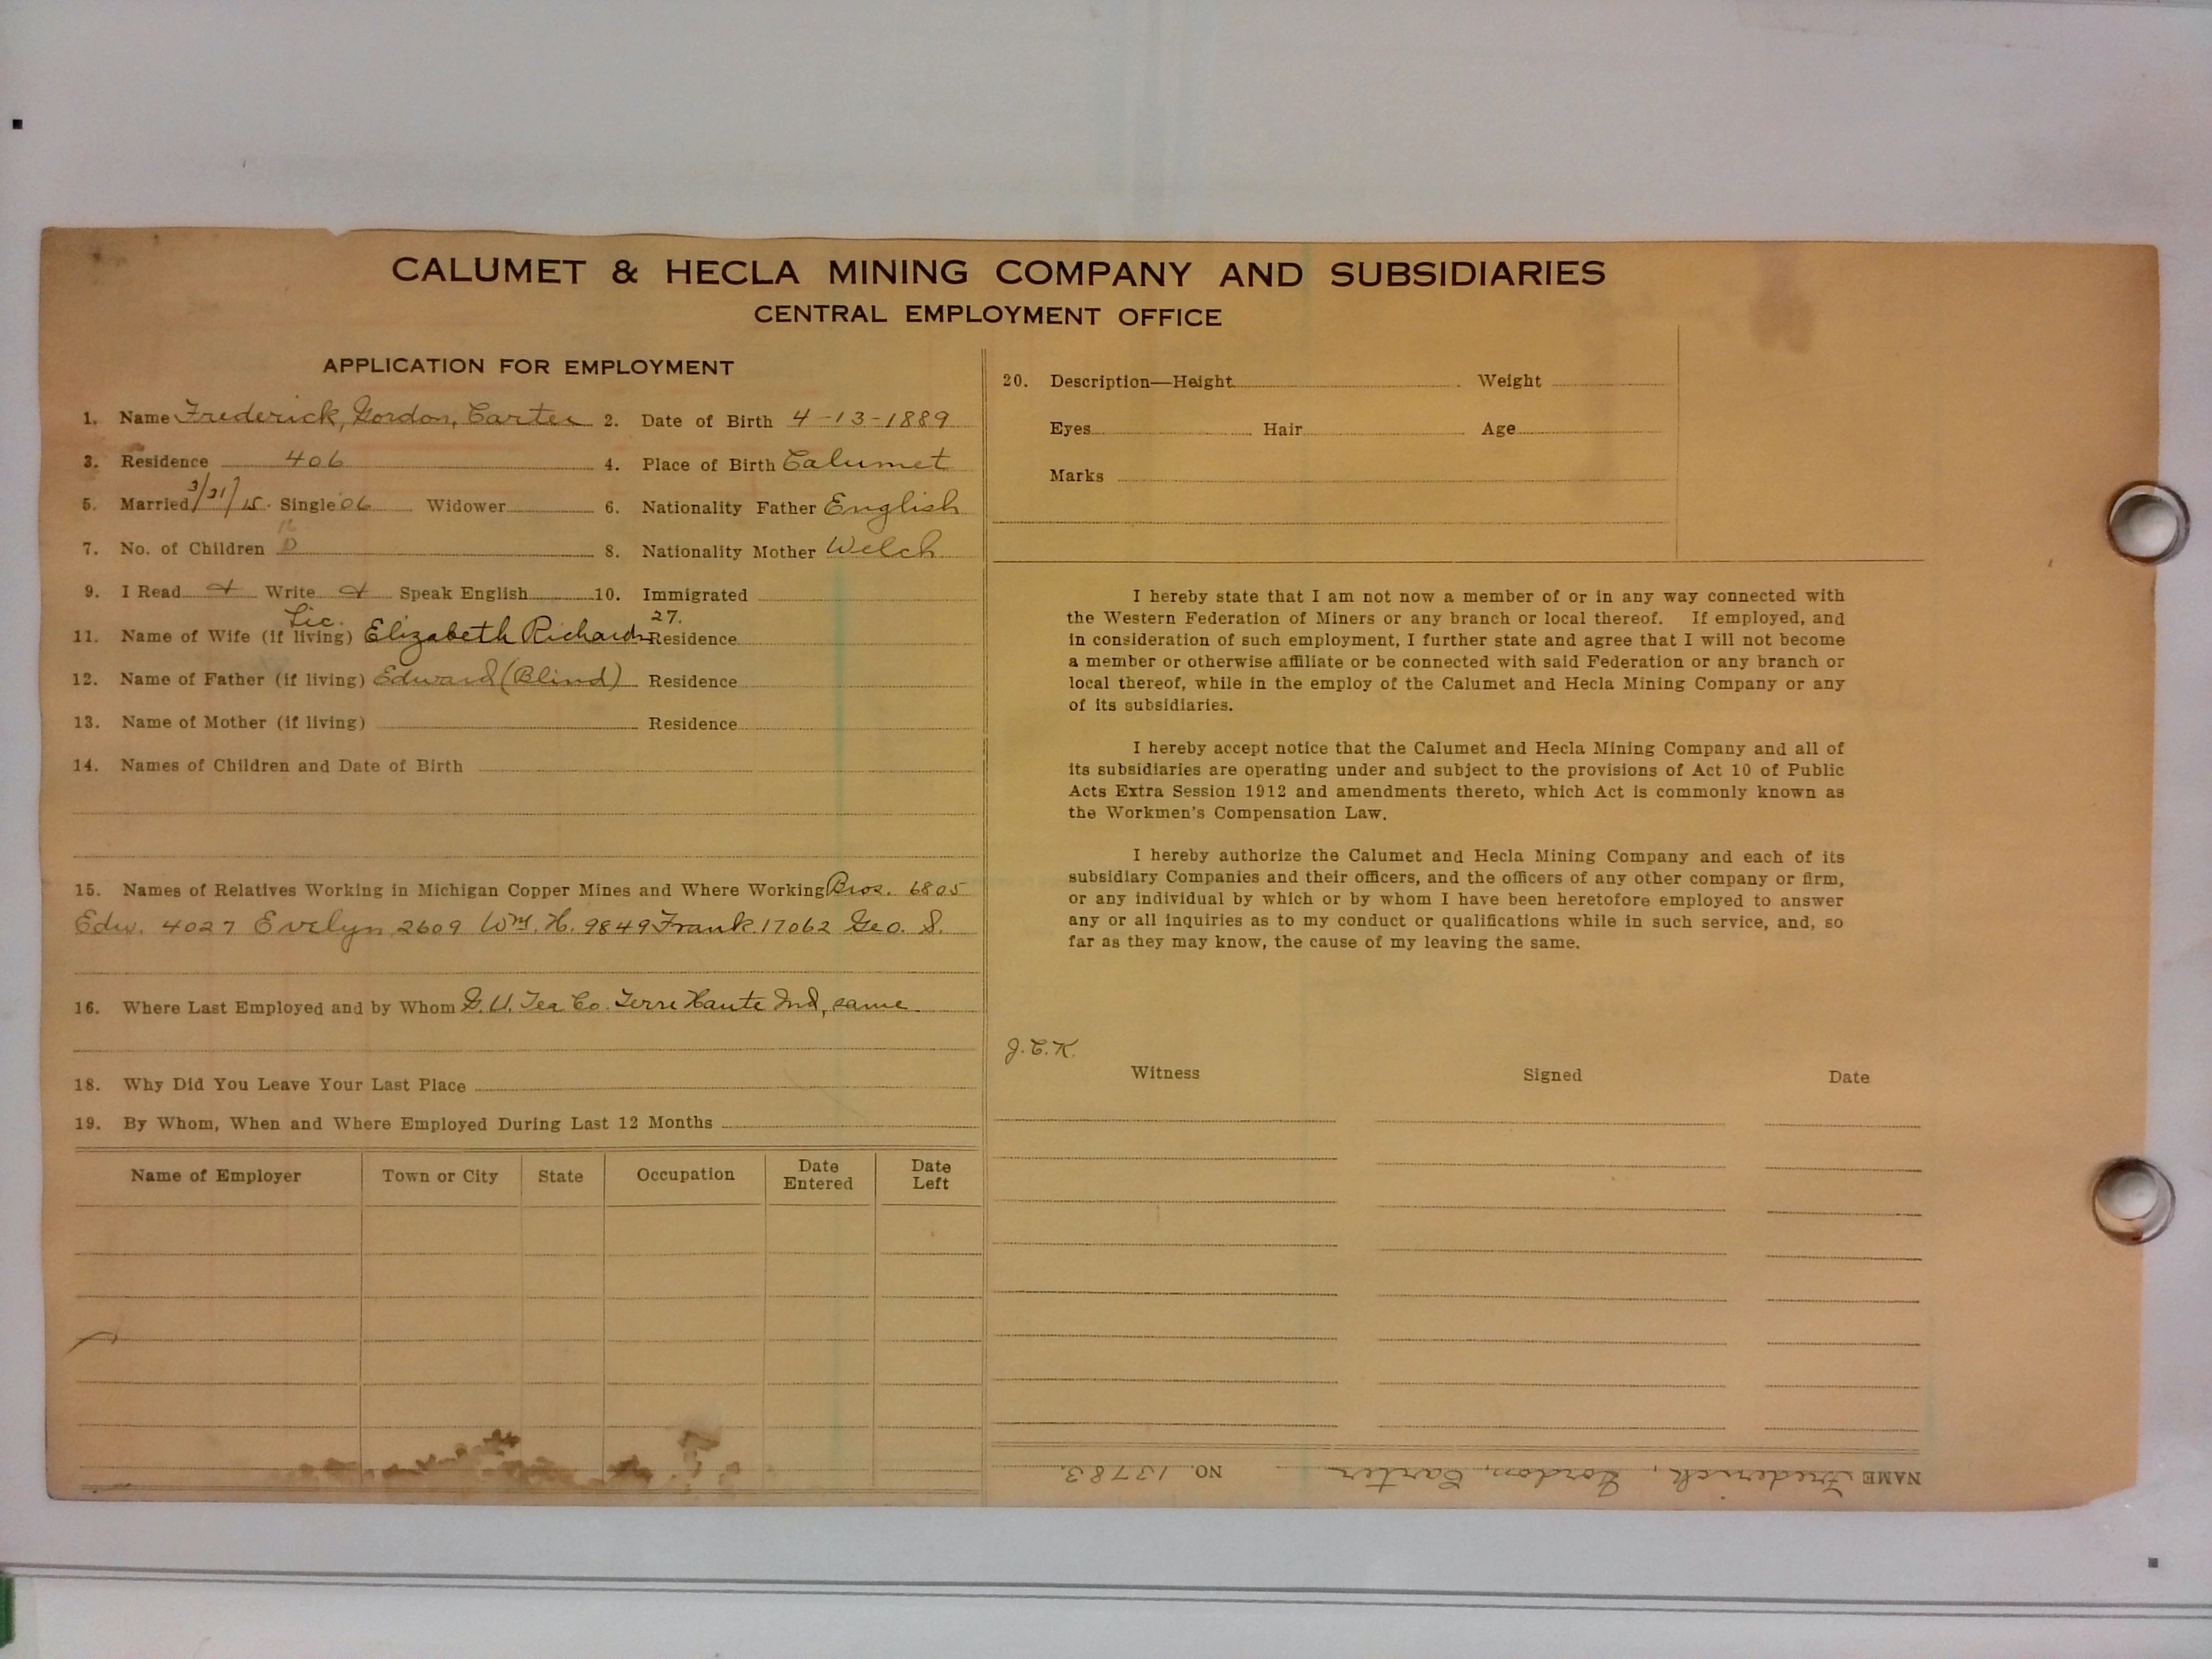 CALUMET & HECLA MINING COMPANY AND SUBSIDIARIES
CENTRAL EMPLOYMENT OFFICE
APPLICATION FOR EMPLOYMENT
1. Name Frederick, Gordon, Carter 2. Date of Birth 4-13-1889
3. Residence 406 4. Place of Birth Calumet
5. Married 3/31/15. Single 06 Widower 6. Nationality Father English
7. No. of Children 8. Nationality Mother Welch
9. I Read Write Speak English 10. Immigrated
Lic. 27.
11. Name of Wife (if living) Elizabeth Richards Residence
12. Name of Father (if living) Edward (Blind) Residence
13. Name of Mother (if living) Residence
14. Names of Children and Date of Birth
15. Names of Relatives Working in Michigan Copper Mines and Where Working Bros. 6805
Edw. 4027 Evelyn 2609 Wm. H. 9849 Frank 17062 Geo. S.
16. Where Last Employed and by Whom G. U. Tea Co. Terre Haute Ind, same
18. Why Did You Leave Your Last Place
19. By Whom, When and Where Employed During Last 12 Months
Name of Employer Town or City State Occupation Date Entered Date Left
20. Description—Height Weight
Eyes Hair Age
Marks
I hereby state that I am not now a member of or in any way connected with
the Western Federation of Miners or any branch or local thereof. If employed, and
in consideration of such employment, I further state and agree that I will not become
a member or otherwise affiliate or be connected with said Federation or any branch or
local thereof, while in the employ of the Calumet and Hecla Mining Company or any
of its subsidiaries.
I hereby accept notice that the Calumet and Hecla Mining Company and all of
its subsidiaries are operating under and subject to the provisions of Act 10 of Public
Acts Extra Session 1912 and amendments thereto, which Act is commonly known as
the Workmen's Compensation Law.
I hereby authorize the Calumet and Hecla Mining Company and each of its
subsidiary Companies and their officers, and the officers of any other company or firm,
or any individual by which or by whom I have been heretofore employed to answer
any or all inquiries as to my conduct or qualifications while in such service, and, so
far as they may know, the cause of my leaving the same.
J.C.K.
Witness Signed Date
NAME Frederick, Gordon, Carter NO. 13783.